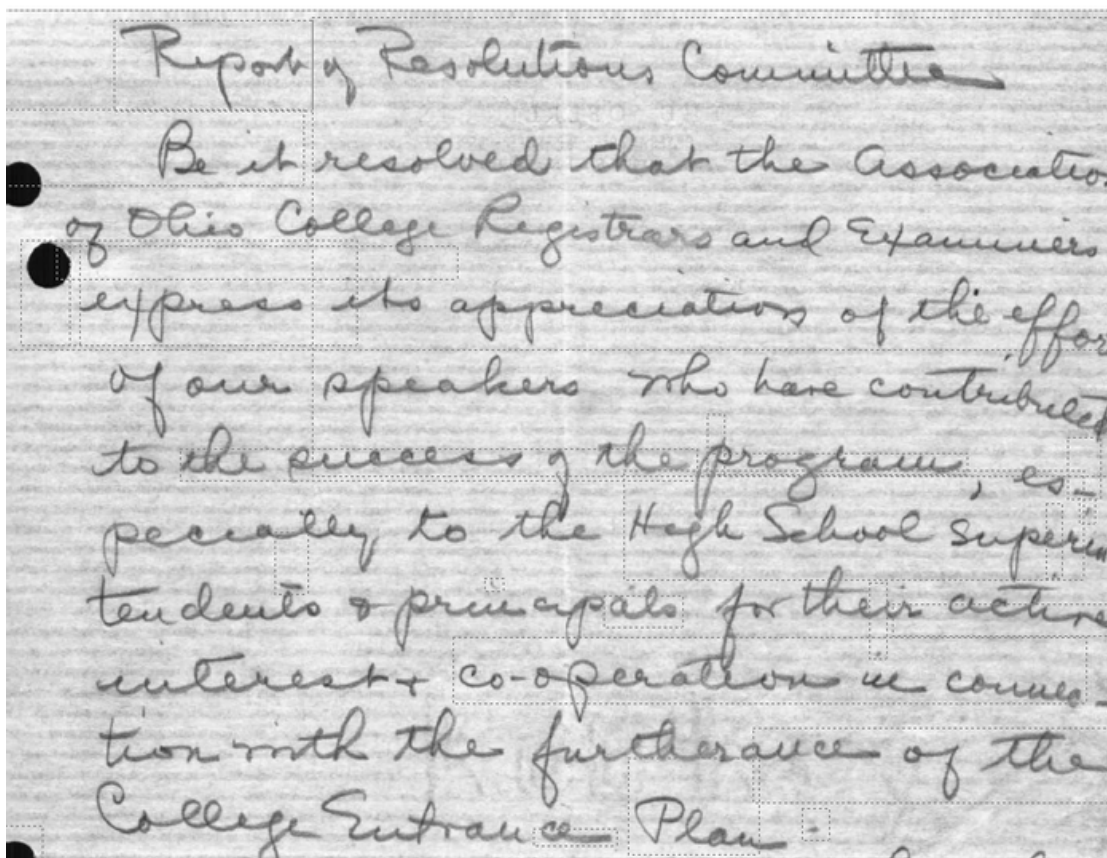 Report of Resolutions Committee
Be it resolved that the Associatio
of Ohio College Registrars and Examiners
express its appreciation of the effor
of our speakers who have contributed
to the success of the program, es-
pecially to the High School Superin
tendents & principals for their active
interest + co-operation in connec-
tion with the furtherance of the
College Entrance Plan.